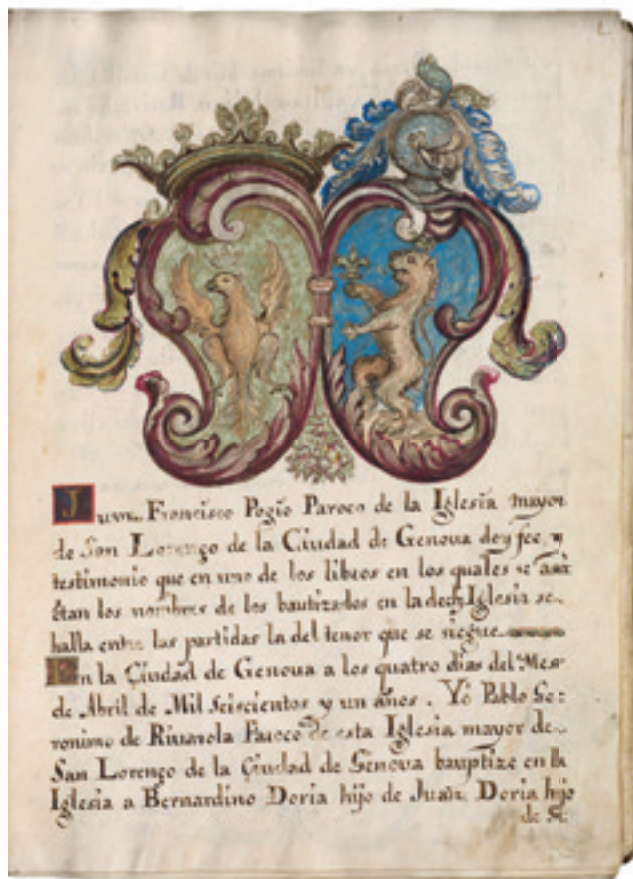 Juan Francisco Pogio Paroco de la Iglesia mayor
de San Lorenço de la Ciudad de Genova doy fee, y
testimonio que en uno de los libros en los quales se asiē
tan los nombres de los bautizados en la dcħa Iglesia se
halla entre las partidas la del tenor que se sigue
En la Ciudad de Genova a los quatro dias del Mes
de Abril de Mil seiscientos y un años. Yo Pablo Ge:
ronimo de Rivarola Paroco de esta Iglesia mayor de
San Lorenço de la Ciudad de Genova bauptize en la
Iglesia a Bernardino Doria hijo de Juan Doria hijo
de